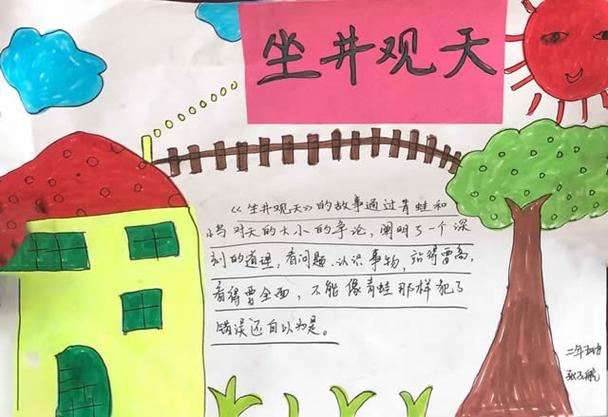 坐井观天
《坐井观天》的故事通过青蛙和
小鸟对天的大小的争论,阐明了一个深
刻的道理,看问题、认识事物,站得要高,
看得要全面,不能像青蛙那样犯了
错误还自以为是。